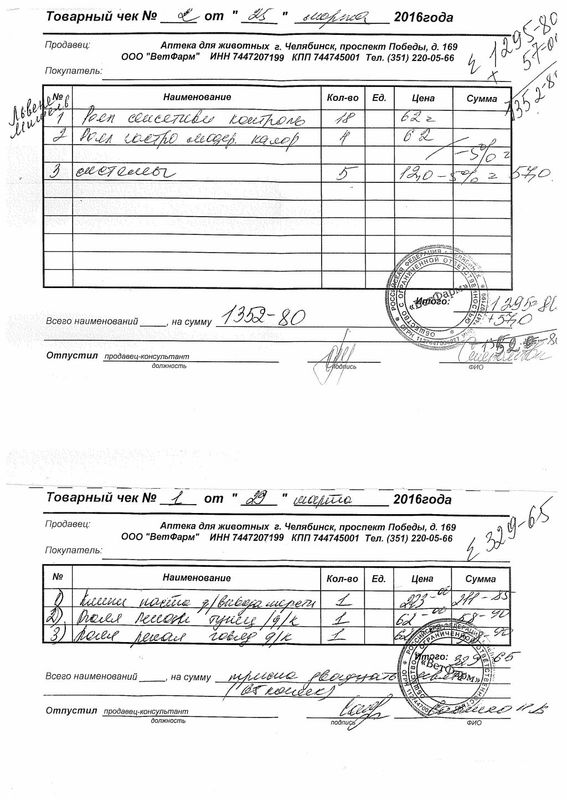 Товарный чек № 2 от " 25 " марта 2016года
Σ 1295-80
+ 57-00
1352-80
Продавец: Аптека для животных г. Челябинск, проспект Победы, д. 169
ООО "ВетФарм" ИНН 7447207199 КПП 744745001 Тел. (351) 220-05-66
Покупатель:
№ Наименование Кол-во Ед. Цена Сумма
1 Роял контроль 18 62=
2 Роял гастро модер. калор 4 62
-5%=
3 системы 5 12,0 -5%= 57,0
Итого: 1295=80
+57,0
1352-80
Всего наименований ____, на сумму 1352-80
Отпустил продавец-консультант
должность подпись ФИО
Товарный чек № 1 от " 29 " марта 2016года
Σ 329-65
Продавец: Аптека для животных г. Челябинск, проспект Победы, д. 169
ООО "ВетФарм" ИНН 7447207199 КПП 744745001 Тел. (351) 220-05-66
Покупатель:
№ Наименование Кол-во Ед. Цена Сумма
1) паста д/вывода шерсти 1 223-00 211-85
2) Роял тунец д/к 1 62-00 58-90
3) Роял ренал говяд д/к 1 62 58-90
Итого: 329-65
Всего наименований ____, на сумму триста двадцать девять
(65 копеек)
Отпустил продавец-консультант
должность подпись ФИО
«ВетФарм»